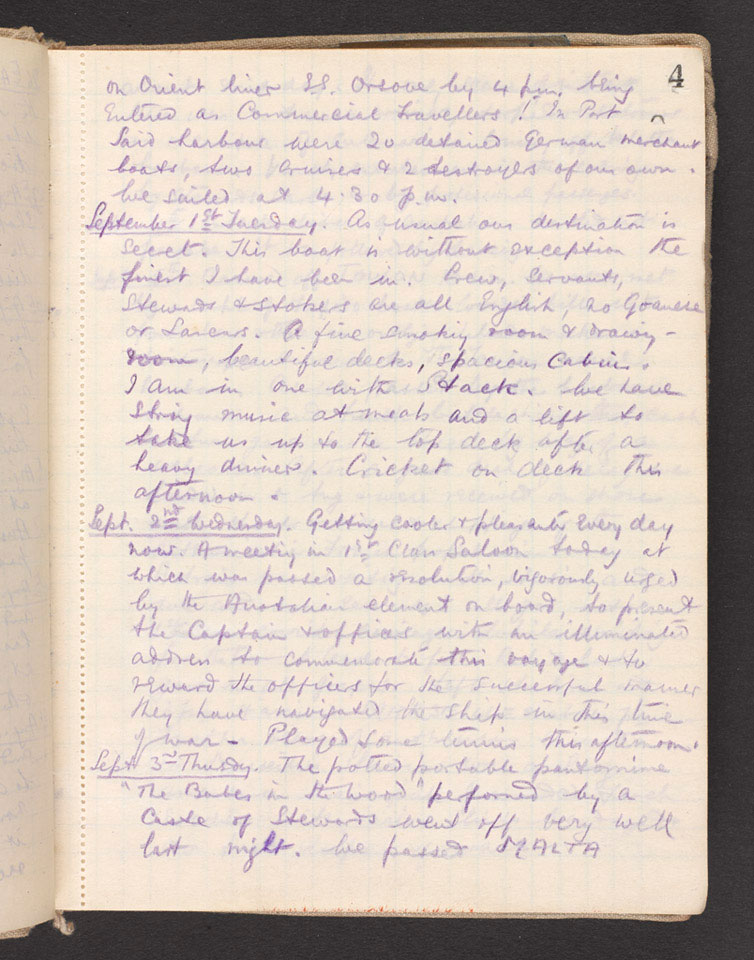 4
on Orient liner S.S. Orsova by 4 p.m. being
Entered as Commercial Travellers! In Port
Said harbour were 20 detained German merchant
boats, two cruisers & 2 destroyers of our own.
We sailed at 4.30 p.m.
September 1st Tuesday. As usual our destination is
Secret. This boat is without exception the
finest I have been in. Crew, Servants,
Stewards & Stokers are all English, no Goanese
or Lascars. A fine smoking room & drawing-
room, beautiful decks, spacious Cabins.
I am in one with Stack. We have
String music at meals and a lift to
take us up to the top deck after a
heavy dinner. Cricket on deck this
afternoon.
Sept. 2nd Wednesday. Getting cooler & pleasanter every day
now. A meeting in 1st Class Saloon today at
which was passed a resolution, vigorously urged
by the Australian element on board, to present
the Captain & officers with an illuminated
address to commemorate this voyage & to
reward the officers for the successful manner
they have navigated the ship in this time
of war - Played some tennis this afternoon.
Sept 3rd Thursday. The potted portable pantomime
"The Babes in the Wood" performed by a
Caste of Stewards went off very well
last night. We passed MALTA